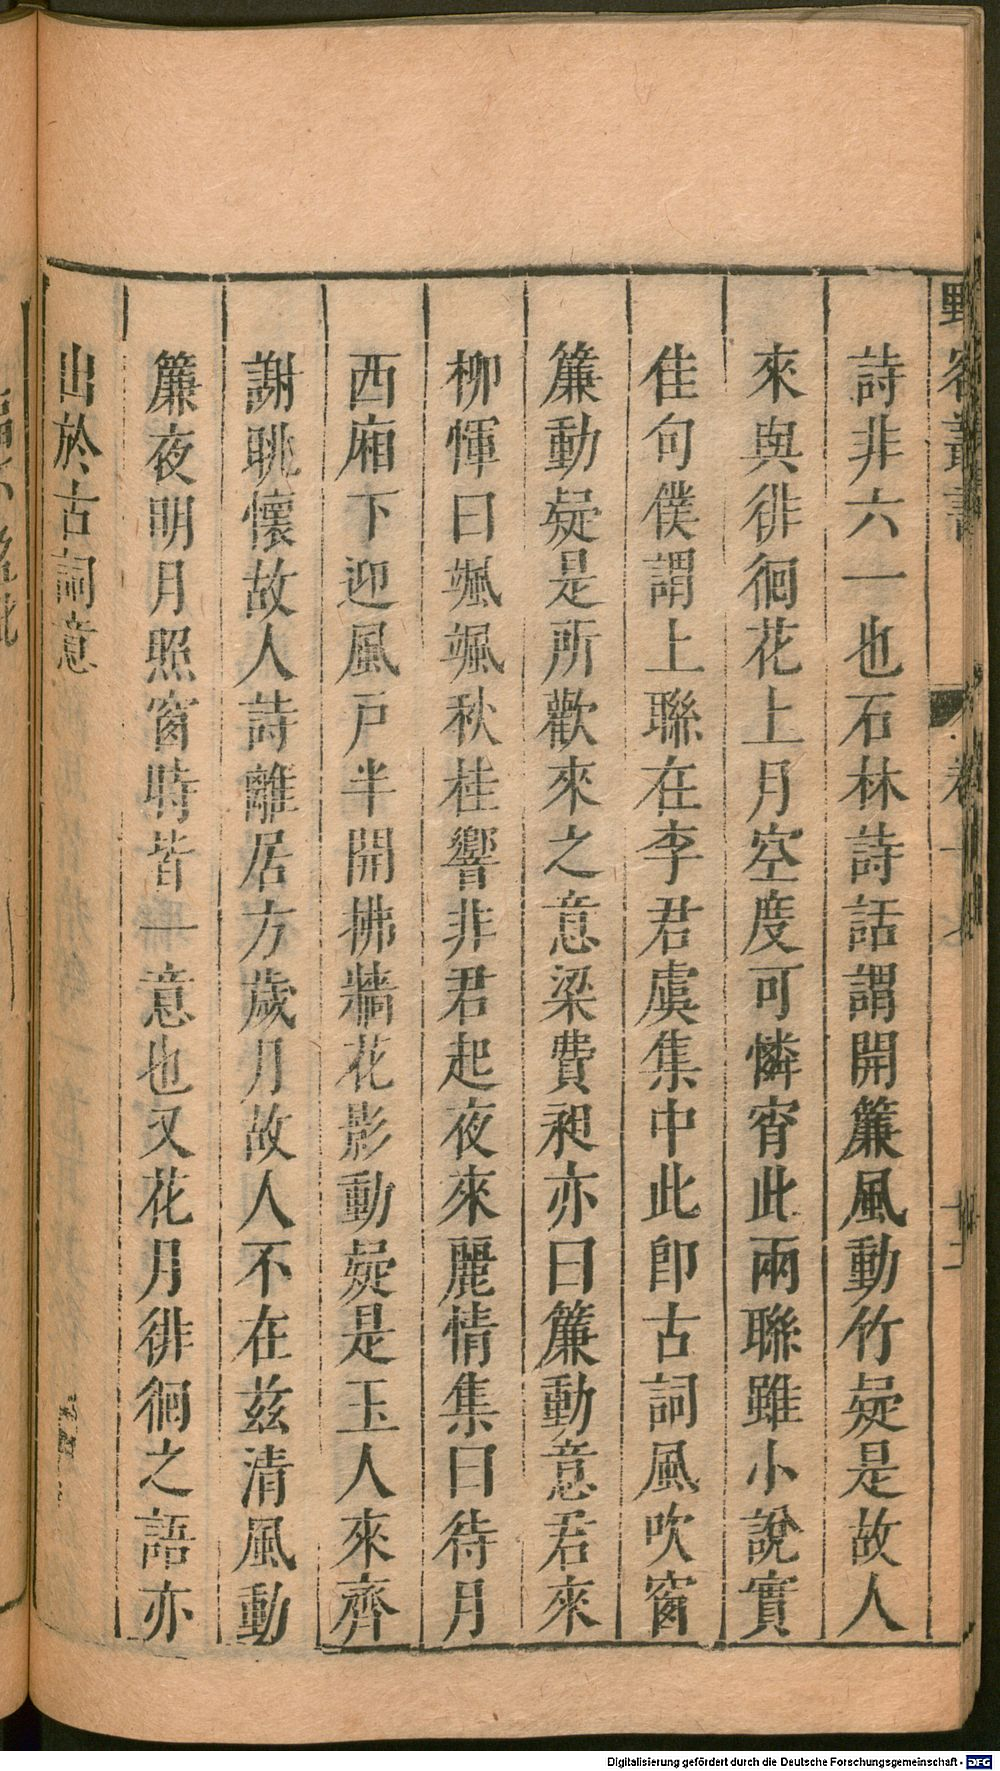 野客叢書
卷十七
十二
詩非六一也石林詩話謂開簾風動竹疑是故人
來與徘徊花上月空度可憐宵此兩聯雖小說實
佳句僕謂上聯在李君虞集中此即古詞風吹窗
簾動疑是所歡來之意梁費昶亦曰簾動意君來
柳惲曰颯颯秋桂響非君起夜來麗情集曰待月
西廂下迎風戶半開拂牆花影動疑是玉人來齊
謝朓懷故人詩離居方歲月故人不在茲清風動
簾夜明月照窗時皆一意也又花月徘徊之語亦
出於古詞意
Digitalisierung gefördert durch die Deutsche Forschungsgemeinschaft - DFG